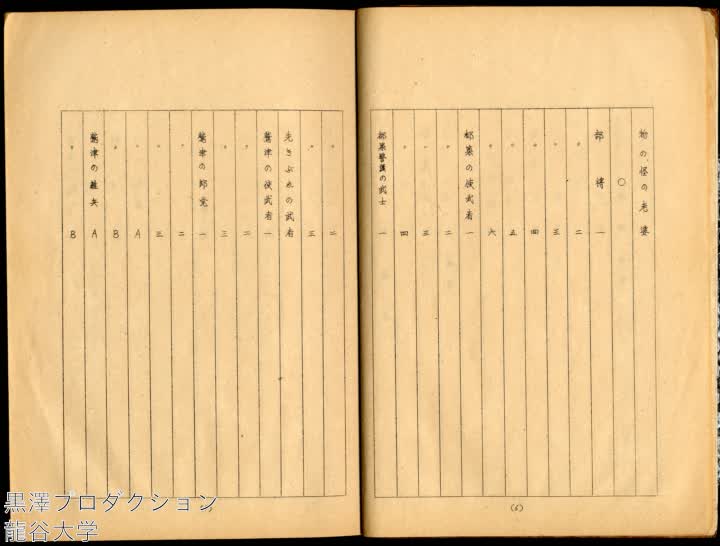 物の怪の老婆
○
部将 一
〃 二
〃 三
〃 四
〃 五
〃 六
都築の使武者 一
〃 二
〃 三
〃 四
都築警護の武士 一
〃 二
〃 三
先きぶれの武者
鷲津の使武者 一
〃 二
〃 三
鷲津の郎党 一
〃 二
〃 三
〃 A
〃 B
鷲津の雑兵 A
〃 B
(6)
黒澤プロダクション
龍谷大学